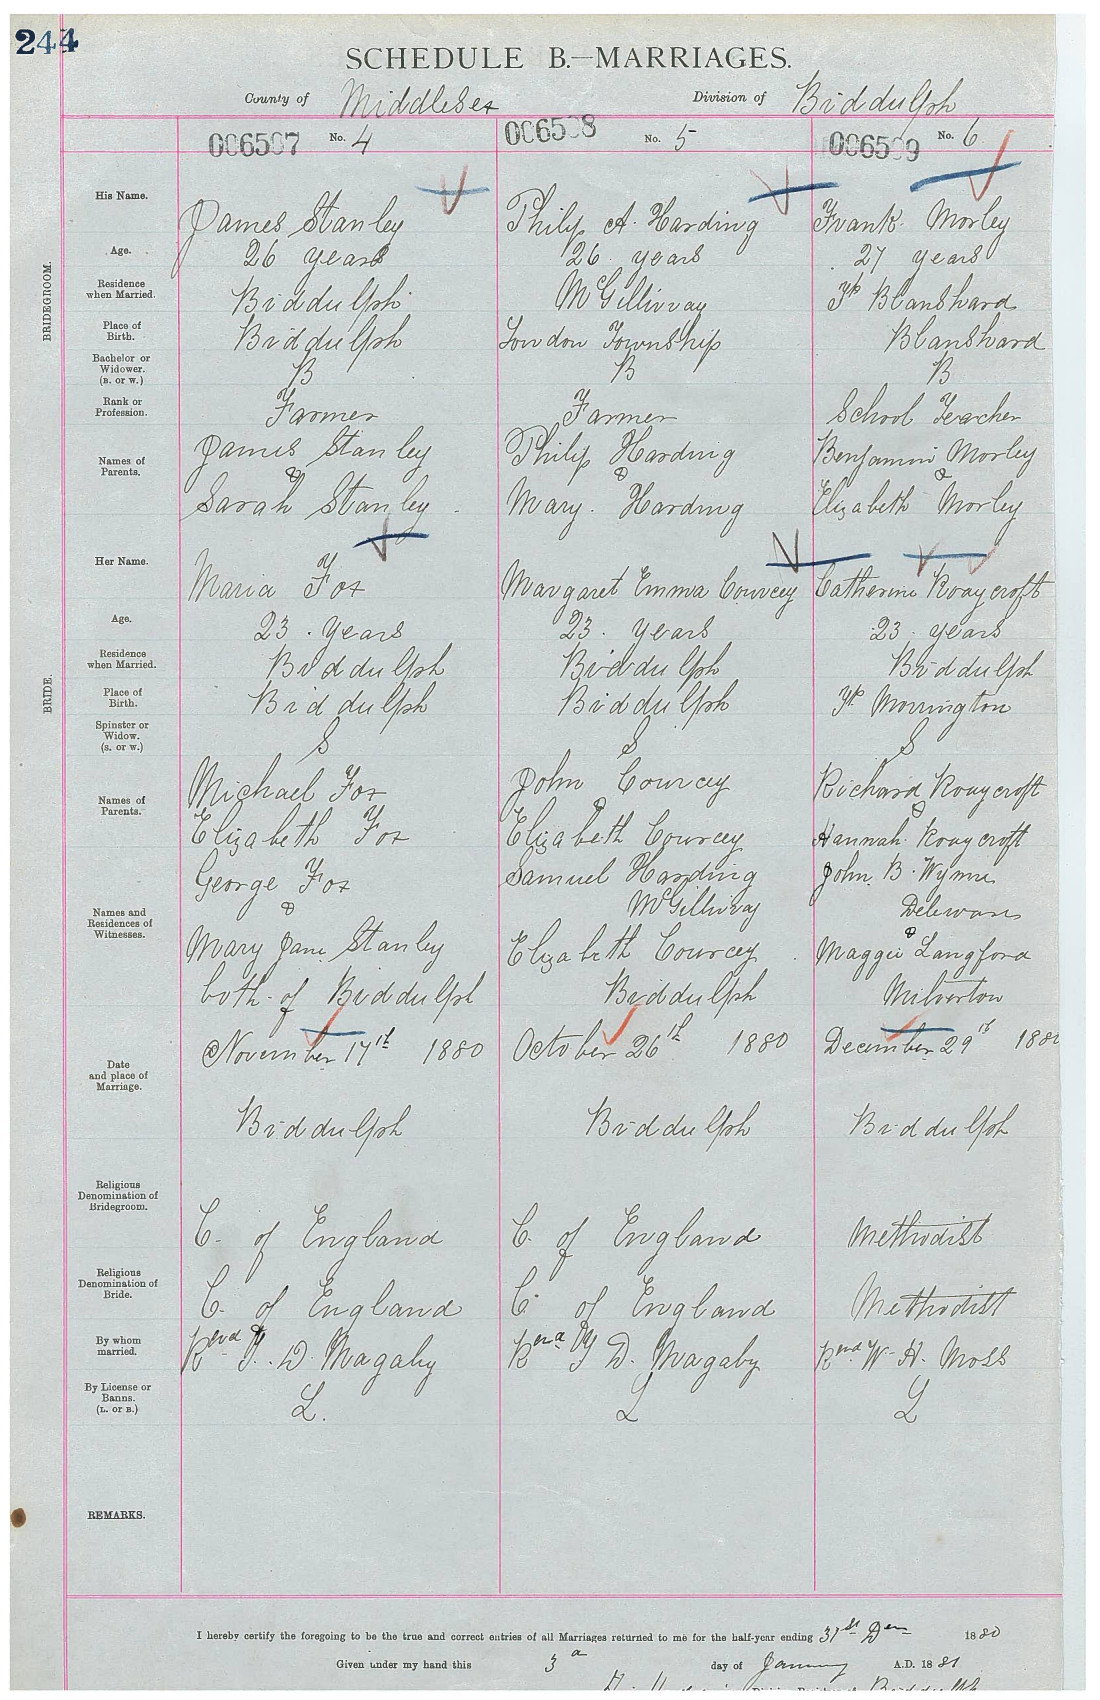 244
SCHEDULE B.—MARRIAGES.
County of Middlesex Division of Biddulph
006507 No. 4 006508 No. 5 006509 No. 6
BRIDEGROOM.
His Name. James Stanley Philip A. Harding Frank Morley
Age. 26 years 26 years 27 years
Residence when Married. Biddulph McGillivray Tp Blanshard
Place of Birth. Biddulph London Township Blanshard
Bachelor or Widower. (B. or W.) B B B
Rank or Profession. Farmer Farmer School Teacher
Names of Parents. James Stanley Philip Harding Benjamin Morley
& & &
Sarah Stanley Mary Harding Elizabeth Morley
BRIDE.
Her Name. Maria Fox Margaret Emma Courcey Catherine Roaycroft
Age. 23 years 23 years 23 years
Residence when Married. Biddulph Biddulph Biddulph
Place of Birth. Biddulph Biddulph Tp Mornington
Spinster or Widow. (S. or W.) S S S
Names of Parents. Michael Fox John Courcey Richard Roaycroft
& &
Elizabeth Fox Elizabeth Courcey Hannah Roaycroft
Names and Residences of Witnesses. George Fox Samuel Harding John B. Wynn
& McGillivray
Mary Jane Stanley Elizabeth Courcey & Maggie Langford
both of Biddulph Biddulph Milverton
Date and place of Marriage. November 17th 1880 October 26th 1880 December 29th 1880
Biddulph Biddulph Biddulph
Religious Denomination of Bridegroom. C. of England C. of England Methodist
Religious Denomination of Bride. C. of England C. of England Methodist
By whom married. Revd T. D. Magahy Revd T D. Magahy Revd W. H. Moss
By License or Banns. (L. or B.) L. L L
REMARKS.
I hereby certify the foregoing to be the true and correct entries of all Marriages returned to me for the half-year ending 31st Decr 1880
Given under my hand this 3d day of January A.D. 1881